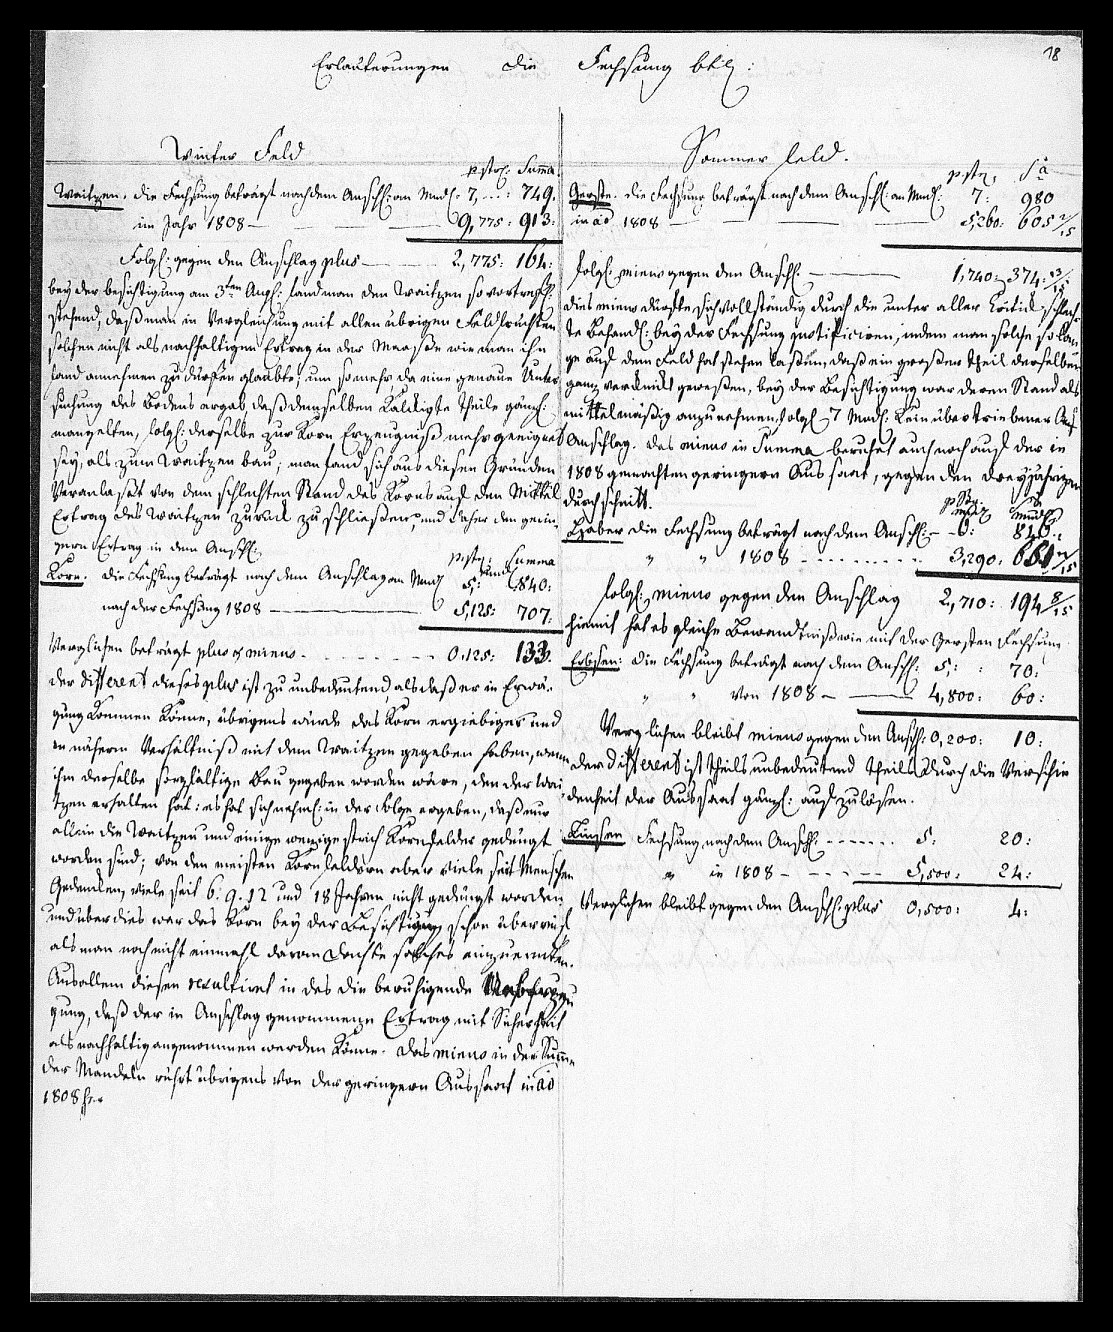 18
Erläuterungen die Fechsung btlg:
Winter Feld
p. strz. Summa
Waitzen, die Fechsung beträgt nach dem Anschl: an Mndl: 7, ... : 749.
im Jahr 1808 — 9,775: 913:
Folgl: gegen den Anschlag plus — 2,775: 164:
bey der besichtigung am 3ten Aug: fand man den Waitzen so vortrefl:
stehend, daß man in Vergleichung mit allen übrigen Feldfrüchten
solchen nicht als nachhaltigen Ertrag in der Maaße wie man ihn
fand annehmen zu dürfen glaubte; um so mehr da eine genaue Unter
suchung des Bodens ergab, daß demselben kalkigte Theile gänzl:
mangelten, folgl: derselbe zur Korn Erzeugniß mehr geeignet
sey, als zum Waitzen bau; man fand sich aus diesen Gründen
veranlaßt von dem schlechten Stand des Korns auf den Mittel
Ertrag des Waitzen zurück zu schließen, und daher den gerin-
gern Ertrag in dem Anschl:
p. strz. Summa
Mndl
Korn. die Fechsung beträgt nach dem Anschlag an Mndl 5,: 840:
nach der Fechsung 1808 — 5,125: 707:
Verglichen beträgt plus & minus 0,125: 133.
der different dieses plus ist zu unbedeutend, als daß er in Erwä-
gung kommen könne, übrigens würde das Korn ergiebiger und
in näherm Verhältniß mit dem Waitzen gegeben haben, wenn
ihm derselbe sorgfältige Bau gegeben worden wäre, den der Wai-
tzen erhalten hat: es hat sich nehml: in der Folge ergeben, daß nur
allein die Waitzen und einige wenige strich Kornfelder gedüngt
worden sind; von den meisten Kornfeldern aber viele seit Menschen
Gedenken, viele seit 6. 9. 12 und 18 Jahren nicht gedüngt worden.
und über dies war das Korn bey der Besichtigung schon überreif
als man noch nicht einmahl daran dachte solches einzuernten.
Aus allem diesen resultiret in des die beruhigende Ueberzeu
gung, daß der in Anschlag genommene Ertrag mit Sicherheit
als nachhaltig angenommen werden könne. Das minus in der Summe
der Mandeln rührt übrigens von der geringern Aussaat in ao
1808 her.
Sommer Feld.
p. strz. Sa
Gerste. die Fechsung beträgt nach dem Anschl: an Mndl: 7: 980
in ao 1808 — 5,260: 605 2/15
folgl: minus gegen den Anschl: — 1,740: 374: 13/15
dies minus dürfte sich vollständig durch die unter aller Kritick schlech-
te Behandl: bey der Fechsung justificiren, indem man solche so lan-
ge auf dem Feld hat stehen laßen, daß ein großer Theil derselben
ganz verknickt gewesen, bey der Besichtigung war deren Stand als
mittelmäßig anzunehmen, folgl: 7 Mndl: kein übertriebener
Anschlag. das minus in Summa beruhet auch noch auf der in
1808 gemachten geringern Aussaat, gegen den dreyjährigen
durchschnitt.
p. strz. Sa
Mndl
Haber die Fechsung beträgt nach dem Anschl: — 6: 826.
" " 1808 - - - 3,290: 631 7/15
folgl: minus gegen den Anschlag 2,710: 194 8/15
hiemit hat es gleiche Bewandtniß wie mit der Gersten Fechsung
Erbsen: die Fechsung beträgt nach dem Anschl: 5: : 70:
" " von 1808 — 4,800: 60:
Verglichen bleibt minus gegen den Ansch: 0,200: 10:
der different ist theils unbedeutend theils durch die Verschie
denheit der Aussaat gänzl: aufzulösen.
Linsen Fechsung nach dem Anschl: - - - 5: 20:
" in 1808 - - - 5,500: 24:
Verglichen bleibt gegen den Anschl: plus 0,500: 4: